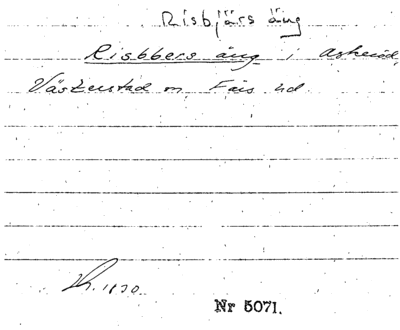 Risbjärs äng
Risbbers äng i Askeröd,
Västerstad sn, Färs hd.
1830
Nr 5071.